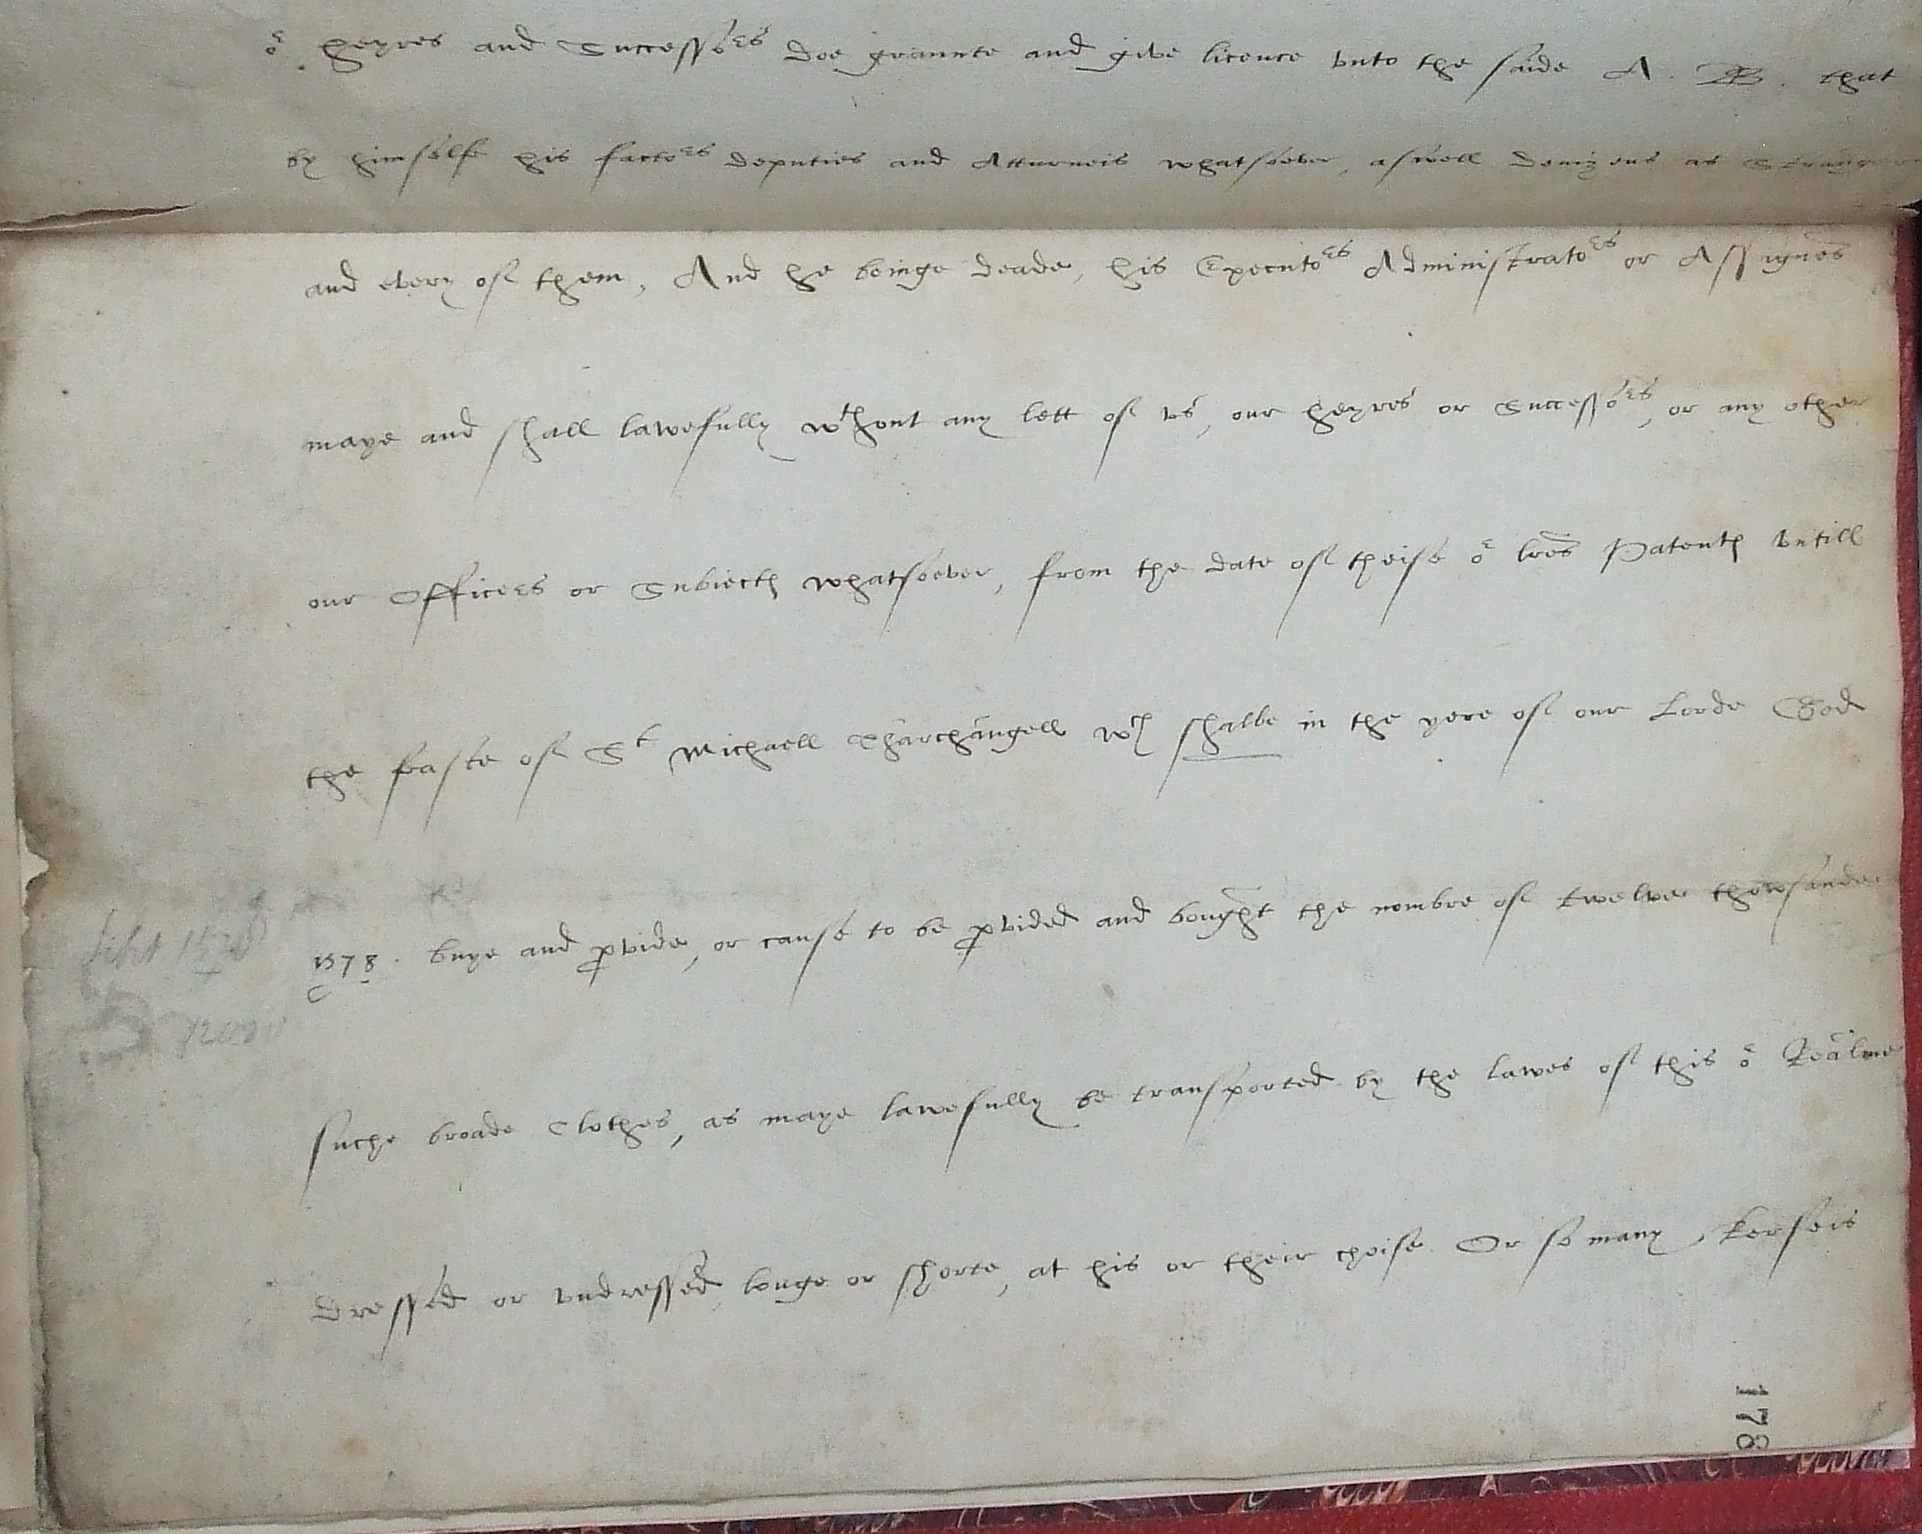 oʳ heyres and Successoʳs doe graunte and give licence vnto the saide A. B. that
by himselfe his factoʳs deputies and Atturneis whatsoever, aswell denizens as Strangers
and every of them, And he beinge deade, his Executoʳs Administratoʳs or Assignes
maye and shall lawefully wᵗhout any lett of vs, our heyres or Successoʳs, or any other
our Officers or Subiectꝭ whatsoever, from the date of theise oʳ lr̃es Patentꝭ vntill
the feaste of Sᵗ Michaell Tharchangell wᶜh shalbe in the yere of our Lorde God
1578. buye and ꝑvide, or cause to be ꝑvided and bought the nombre of twelve thowsande
suche broade Clothes, as maye lawefully be transported by the lawes of this oʳ Realme
dressed or vndressed, longe or shorte, at his or their choise. Or so many Kerseis
178